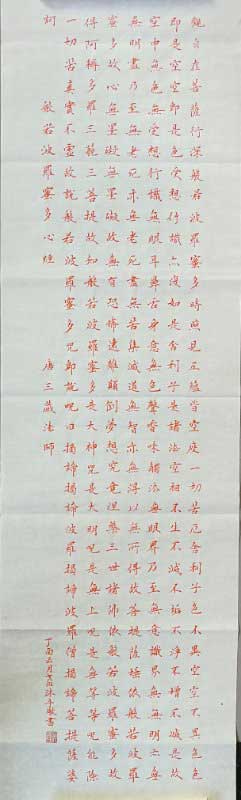 觀自在菩薩行深般若波羅蜜多時照見五蘊皆空度一切苦厄舍利子色不異空空不異色色
即是空空即是色受想行識亦復如是舍利子是諸法空相不生不滅不垢不淨不增不減是故
空中無色無受想行識無眼耳鼻舌身意無色聲香味觸法無眼界乃至無意識界無無明亦無
無明盡乃至無老死亦無老死盡無苦集滅道無智亦無得以無所得故菩提薩埵依般若波羅
蜜多故心無罣礙無罣礙故無有恐怖遠離顛倒夢想究竟涅槃三世諸佛依般若波羅蜜多故
得阿耨多羅三藐三菩提故知般若波羅蜜多是大神咒是大明咒是無上咒是無等等咒能除
一切苦真實不虛故說般若波羅蜜多咒即說咒曰揭諦揭諦波羅揭諦波羅僧揭諦菩提薩婆
訶
般若波羅蜜多心經 唐三藏法師
丁酉五月沐手敬書